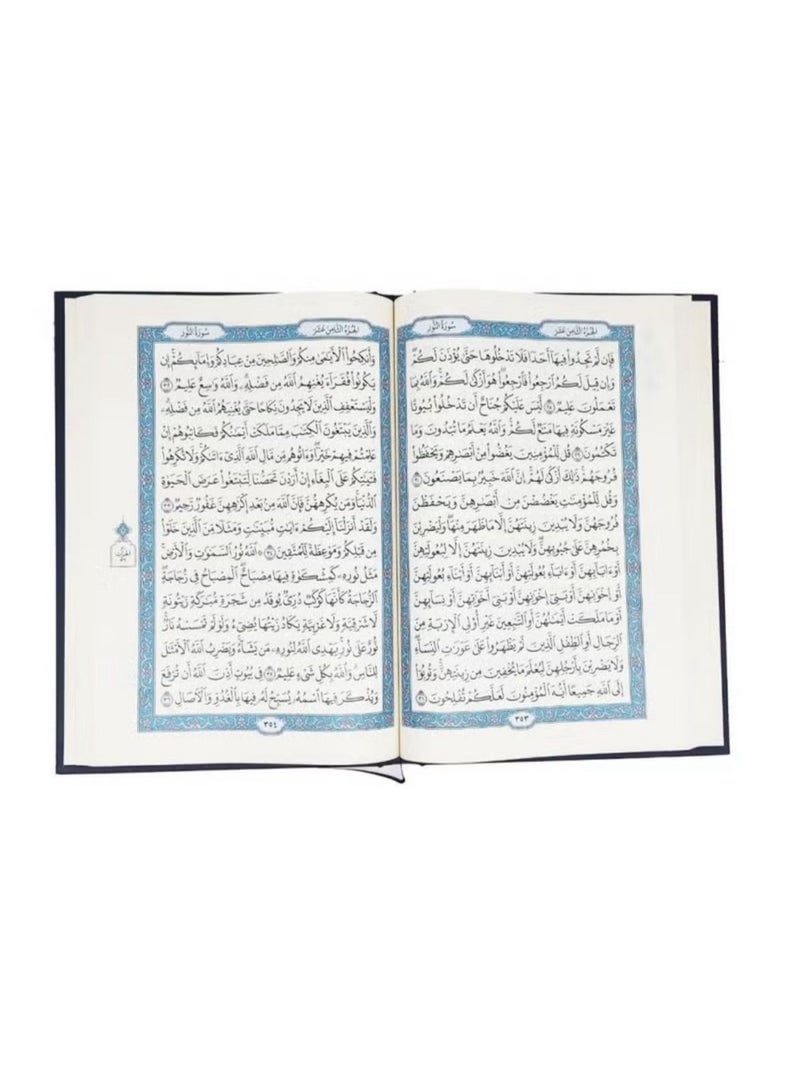 الجُزْءُ الثَّامِنَ عَشَرَ
سُورَةُ النُّورِ
فَإِن لَّمْ تَجِدُوا۟ فِيهَآ أَحَدًا فَلَا تَدْخُلُوهَا حَتَّىٰ يُؤْذَنَ لَكُمْ
وَإِن قِيلَ لَكُمُ ٱرْجِعُوا۟ فَٱرْجِعُوا۟ۖ هُوَ أَزْكَىٰ لَكُمْۚ وَٱللَّهُ بِمَا
تَعْمَلُونَ عَلِيمٌ ٢٨ لَّيْسَ عَلَيْكُمْ جُنَاحٌ أَن تَدْخُلُوا۟ بُيُوتًا
غَيْرَ مَسْكُونَةٍ فِيهَا مَتَٰعٌ لَّكُمْۚ وَٱللَّهُ يَعْلَمُ مَا تُبْدُونَ وَمَا
تَكْتُمُونَ ٢٩ قُل لِّلْمُؤْمِنِينَ يَغُضُّوا۟ مِنْ أَبْصَٰرِهِمْ وَيَحْفَظُوا۟
فُرُوجَهُمْۚ ذَٰلِكَ أَزْكَىٰ لَهُمْۗ إِنَّ ٱللَّهَ خَبِيرٌۢ بِمَا يَصْنَعُونَ ٣٠
وَقُل لِّلْمُؤْمِنَٰتِ يَغْضُضْنَ مِنْ أَبْصَٰرِهِنَّ وَيَحْفَظْنَ
فُرُوجَهُنَّ وَلَا يُبْدِينَ زِينَتَهُنَّ إِلَّا مَا ظَهَرَ مِنْهَاۖ وَلْيَضْرِبْنَ
بِخُمُرِهِنَّ عَلَىٰ جُيُوبِهِنَّۖ وَلَا يُبْدِينَ زِينَتَهُنَّ إِلَّا لِبُعُولَتِهِنَّ
أَوْ ءَابَآئِهِنَّ أَوْ ءَابَآءِ بُعُولَتِهِنَّ أَوْ أَبْنَآئِهِنَّ أَوْ أَبْنَآءِ بُعُولَتِهِنَّ
أَوْ إِخْوَٰنِهِنَّ أَوْ بَنِىٓ إِخْوَٰنِهِنَّ أَوْ بَنِىٓ أَخَوَٰتِهِنَّ أَوْ نِسَآئِهِنَّ
أَوْ مَا مَلَكَتْ أَيْمَٰنُهُنَّ أَوِ ٱلتَّٰبِعِينَ غَيْرِ أُو۟لِى ٱلْإِرْبَةِ مِنَ
ٱلرِّجَالِ أَوِ ٱلطِّفْلِ ٱلَّذِينَ لَمْ يَظْهَرُوا۟ عَلَىٰ عَوْرَٰتِ ٱلنِّسَآءِۖ
وَلَا يَضْرِبْنَ بِأَرْجُلِهِنَّ لِيُعْلَمَ مَا يُخْفِينَ مِن زِينَتِهِنَّۚ وَتُوبُوٓا۟
إِلَى ٱللَّهِ جَمِيعًا أَيُّهَ ٱلْمُؤْمِنُونَ لَعَلَّكُمْ تُفْلِحُونَ ٣١
٣٥٣
الجُزْءُ الثَّامِنَ عَشَرَ
سُورَةُ النُّورِ
وَأَنكِحُوا۟ ٱلْأَيَٰمَىٰ مِنكُمْ وَٱلصَّٰلِحِينَ مِنْ عِبَادِكُمْ وَإِمَآئِكُمْۚ إِن
يَكُونُوا۟ فُقَرَآءَ يُغْنِهِمُ ٱللَّهُ مِن فَضْلِهِۦۗ وَٱللَّهُ وَٰسِعٌ عَلِيمٌ ٣٢
وَلْيَسْتَعْفِفِ ٱلَّذِينَ لَا يَجِدُونَ نِكَاحًا حَتَّىٰ يُغْنِيَهُمُ ٱللَّهُ مِن فَضْلِهِۦۗ
وَٱلَّذِينَ يَبْتَغُونَ ٱلْكِتَٰبَ مِمَّا مَلَكَتْ أَيْمَٰنُكُمْ فَكَاتِبُوهُمْ إِنْ
عَلِمْتُمْ فِيهِمْ خَيْرًاۖ وَءَاتُوهُم مِّن مَّالِ ٱللَّهِ ٱلَّذِىٓ ءَاتَىٰكُمْۚ وَلَا تُكْرِهُوا۟
فَتَيَٰتِكُمْ عَلَى ٱلْبِغَآءِ إِنْ أَرَدْنَ تَحَصُّنًا لِّتَبْتَغُوا۟ عَرَضَ ٱلْحَيَوٰةِ
ٱلدُّنْيَاۚ وَمَن يُكْرِههُّنَّ فَإِنَّ ٱللَّهَ مِنۢ بَعْدِ إِكْرَٰهِهِنَّ غَفُورٌ رَّحِيمٌ ٣٣
وَلَقَدْ أَنزَلْنَآ إِلَيْكُمْ ءَايَٰتٍ مُّبَيِّنَٰتٍ وَمَثَلًا مِّنَ ٱلَّذِينَ خَلَوْا۟
مِن قَبْلِكُمْ وَمَوْعِظَةً لِّلْمُتَّقِينَ ٣٤ ۞ ٱللَّهُ نُورُ ٱلسَّمَٰوَٰتِ وَٱلْأَرْضِۚ
مَثَلُ نُورِهِۦ كَمِشْكَوٰةٍ فِيهَا مِصْبَاحٌۖ ٱلْمِصْبَاحُ فِى زُجَاجَةٍۖ
ٱلزُّجَاجَةُ كَأَنَّهَا كَوْكَبٌ دُرِّىٌّ يُوقَدُ مِن شَجَرَةٍ مُّبَٰرَكَةٍ زَيْتُونَةٍ
لَّا شَرْقِيَّةٍ وَلَا غَرْبِيَّةٍ يَكَادُ زَيْتُهَا يُضِىٓءُ وَلَوْ لَمْ تَمْسَسْهُ نَارٌۚ
نُّورٌ عَلَىٰ نُورٍۗ يَهْدِى ٱللَّهُ لِنُورِهِۦ مَن يَشَآءُۚ وَيَضْرِبُ ٱللَّهُ ٱلْأَمْثَٰلَ
لِلنَّاسِۗ وَٱللَّهُ بِكُلِّ شَىْءٍ عَلِيمٌ ٣٥ فِى بُيُوتٍ أَذِنَ ٱللَّهُ أَن تُرْفَعَ
وَيُذْكَرَ فِيهَا ٱسْمُهُۥ يُسَبِّحُ لَهُۥ فِيهَا بِٱلْغُدُوِّ وَٱلْءَاصَالِ ٣٦
٣٥٤